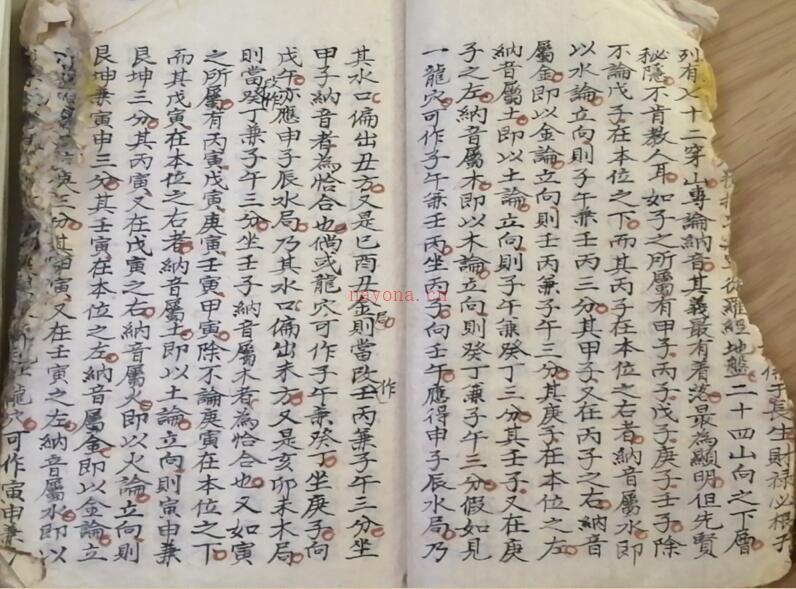 倍于長生財祿必根于
羅經地盤二十四山向之下層
列有七十二穿山專論納音其義最有着落最為顯明但先賢
秘隱不肯教人耳如子之所屬有甲子丙子戊子庚子壬子除
不論戊子在本位之下而其丙子在本位之右者納音屬水即
以水論立向則子午兼壬丙三分其甲子又在丙子之右納音
屬金即以金論立向則壬丙兼子午三分其庚子在本位之左
納音屬土即以土論立向則子午兼癸丁三分其壬子又在庚
子之左納音屬木即以木論立向則癸丁兼子午三分假如見
一龍穴可作子午兼壬丙坐丙子向壬午應得申子辰水局乃
其水口偏出丑方又是巳酉丑金局則當改作壬丙兼子午三分坐
甲子納音者為恰合也倘或龍穴可作子午兼癸丁坐庚子向
戊午亦應申子辰水局乃其水口偏出未方又是亥卯未木局
則當改作癸丁兼子午三分坐壬子納音屬木者為恰合也又如寅
之所屬有丙寅戊寅庚寅壬寅甲寅除不論庚寅在本位之下
而其戊寅在本位之右者納音屬土即以土論立向則寅申兼
艮坤三分其丙寅又在戊寅之右納音屬火即以火論立向則
艮坤兼寅申三分其壬寅在本位之左納音屬金即以金論立
庚三分其甲寅又在壬寅之左納音屬水即以
龍穴可作寅申兼
nayona.cn